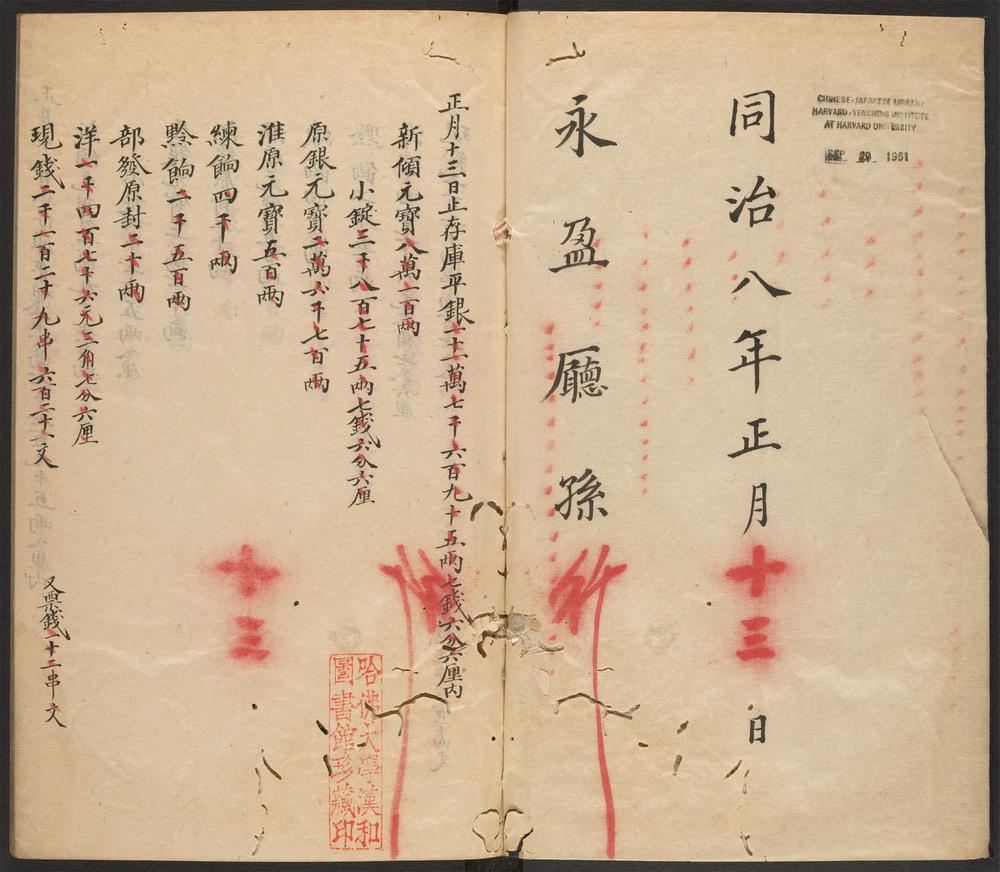 CHINESE-JAPANESE LIBRARY
HARVARD-YENCHING INSTITUTE
AT HARVARD UNIVERSITY
SEP 29 1961
同治八年正月十三日
永盈廳孫
正月十三日止存庫平銀十一萬七千六百九十五兩七錢六分六厘內
新傾元寶八萬二百兩
小錠三千八百七十五兩七錢六分六厘
原銀元寶二萬六千七百兩
淮原元寶五百兩
練餉四千兩
黔餉二千五百兩
部發原封二十兩
洋一千四百七十六元三角七分六厘
現錢二千一百二十九串六百二十一文
又票錢二十二串文
十三
哈佛大學漢和
圖書館珍藏印